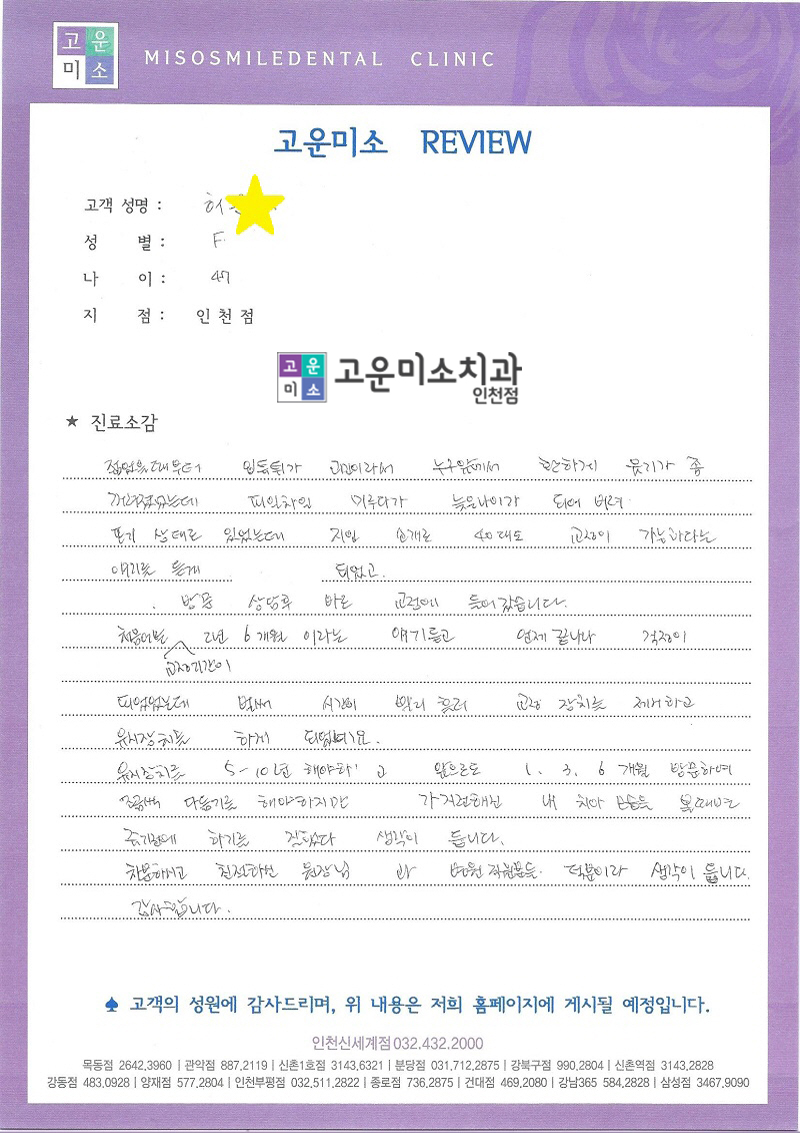 고운
미소
MISOSMILEDENTAL CLINIC
고운미소 REVIEW
고객 성명 : 허
성 별 : F.
나 이 : 47
지 점 : 인천점
고운
미소
고운미소치과
인천점
★ 진료소감
젊었을때부터 입돌튀가 고민이라서 누구앞에서 환하게 웃기가 좀
꺼려졌었는데 차일피일 미루다가 늦은나이가 되어 버려
포기 상태로 있었는데 지인 소개로 40대도 교정이 가능하다는
얘기를 듣게 되었고.
방문 상담후 바로 교정에 들어갔습니다.
처음에는 2년 6개월 이라는 얘기듣고 언제 끝나나 걱정이
교정기간이
되었었는데 벌써 시간이 빨리 흘러 교정 장치를 제거하고
유지장치를 하게 되었네요.
유지장치를 5-10년 해야하고 앞으로도 1. 3. 6 개월 방문하며
조금씩 다듬기를 해야하지만 가지런해진 내 치아 모습을 볼때면
교정하기를 잘했다 생각이 듭니다.
친절하신 원장님 과 병원 직원분들. 덕분이라 생각이 듭니다.
감사드립니다.
♠ 고객의 성원에 감사드리며, 위 내용은 저희 홈페이지에 게시될 예정입니다.
인천신세계점 032.432.2000
목동점 2642,3960 | 관악점 887,2119 | 신촌1호점 3143,6321 | 분당점 031,712,2875 | 강북구점 990,2804 | 신촌역점 3143,2828
강동점 483,0928 | 양재점 577,2804 | 인천부평점 032,511,2822 | 종로점 736,2875 | 건대점 469,2080 | 강남365 584,2828 | 삼성점 3467,9090